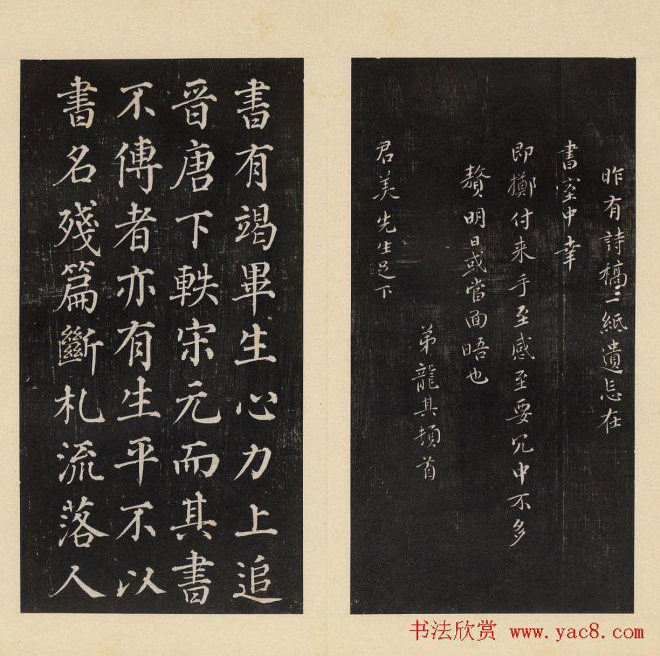 昨有詩稿二紙遺忘在
書室中幸
即擲付来手至感至要冗中不多
贅明日或當面晤也
君美先生足下
弟龍其頓首
書有竭畢生心力上追
晉唐下軼宋元而其書
不傳者亦有生平不以
書名殘篇斷札流落人
书法欣赏 www.yac8.com